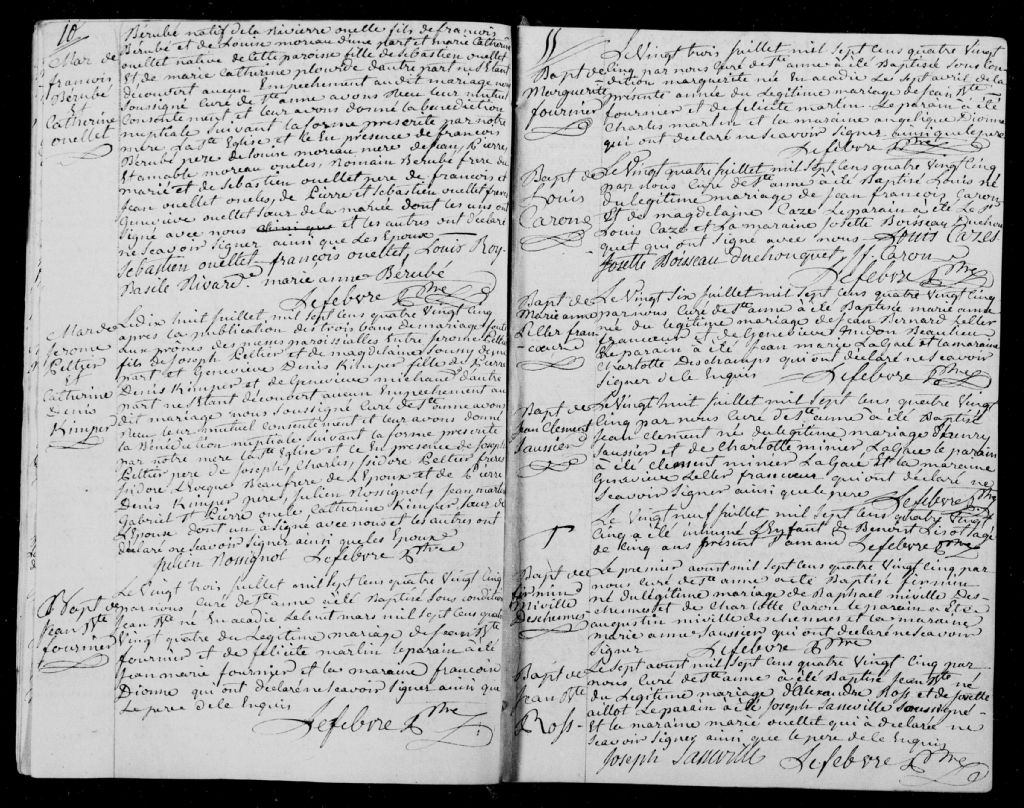 10
Mar de
françois
Bérubé
Et
Catherine
ouellet
Bérubé natif de la Rivierre ouelle fils de françois
Bérubé et de Louise moreau d'une part et marie Catherine
ouellet native de cette paroisse fille de Sébastien ouellet
Et de marie Catherine plourde d'autre part ne s'Etant
découvert aucun Empechement audit mariage nous
Soussigné curé de Ste anne avons Recu leur mutuel
Consentement et leur avons donné la benediction
nuptiale Suivant la forme prescrite par notre
mere la Ste Eglise et ce En presence de françois
Bérubé pere de Louise moreau mere de jean, Pierre,
Et amable moreau oncles, Romain Berubé frere du
marié et de Sebastien ouellet pere de françois et
Jean ouellet oncles, de Pierre et Sébastien ouellet freres
Genevieve ouellet Sœur de la mariée dont les uns ont
Signé avec nous ainsi que et les autres ont déclaré
ne Scavoir Signer ainsi que Les Epoux
Sebastien ouellet françois ouellet, Louis Roy
Basile Nivard. marie anne Bérubé
Lefebvre Ptre
Mar de
Jerome
Peltier
Et
Catherine
Denis
Kimper
Le dix huit juillet, mil sept cens quatre Vingt cinq
après la publication des trois bans de mariage faite
aux prônes des messes paroissialles Entre jerome Peltier
fils de Joseph Peltier et de magdelaine Soucy d'une
part et Genevieve Denis Kimper fille de Pierre
Denis Kimper et de Genevieve michaud d'autre
part ne s'Etant découvert aucun Empechement au
dit mariage nous Soussigné Curé de Ste anne avons
Recu leur mutuel Consentement et leur avons donné
la Bénédiction nuptiale Suivant la forme prescrite
par notre mere la Ste Eglise et ce En presence de joseph
Peltier pere de Joseph, Charles, Isidore Peltier freres
Isidore Levêque Beaufrere de L'Epoux et de Pierre
Denis Kimper pere, Julien Rossignol, Jean martin
Gabriel et Pierre oncle Catherine Kimper Sœur de
L'Epouse dont un a Signé avec nous et les autres ont
déclaré ne Scavoir Signer ainsi que les Epoux
Julien Rossignol Lefebvre Ptre
Bapt de
Jean Bte
fournier
Le Vingt trois juillet mil Sept Cens quatre Vingt Cinq
par nous Curé de Ste anne à été Baptisé Sous condition
Jean Bte né En acadie Le huit mars mil Sept cens quatre
Vingt quatre du Legitime mariage de Jean Bte
fournier et de félicité martin le parain à été
Jean marie fournier et la maraine françoise
Dionne qui ont déclaré ne Scavoir Signer ainsi que
Le pere de ce Enquis
Lefebvre Ptre
11
Bapt de
Marguerite
fournier
Le Vingt trois juillet mil Sept Cens quatre Vingt
Cinq par nous Curé de Ste anne à été Baptisé Sous Con-
dition marguerite née En acadie Le Sept avril de la
presente année du Légitime mariage de Jean Bte
fournier et de félicité martin. Le parain à été
Charles martin et la maraine angelique Dionne
qui ont déclaré ne Scavoir Signer ainsi que le pere
Lefebvre Ptre
Bapt de
Louis
Caron
Le Vingt quatre juillet mil Sept Cens quatre Vingt cinq
par nous Curé de Ste anne à été Baptisé Louis né
du légitime mariage de Jean françois Caron
Et de magdelaine Caze. Le parain a été Le Sr
Louis Caze et La maraine Josette Boisseau Duchou-
quet qui ont Signé avec nous Louis Cazes
Josette Boisseau Duchouquet, Jf. Caron
Lefebvre Ptre
Bapt de
Marie anne
Leller fran-
cœur
Le Vingt Six juillet mil Sept Cens quatre Vingt Cinq
par nous Curé de Ste anne à été Baptisée marie anne
née du légitime mariage de Jean Bernard Leller
francœur et de Genevieve hudon Beaulieu
Le parain à été Jean marie LaGacé et la maraine
Charlotte Deschamps qui ont déclaré ne Scavoir
Signer de ce Enquis
Lefebvre Ptre
Bapt de
Jean Clement
Saussier
Le Vingt huit juillet mil Sept Cens quatre Vingt
Cinq par nous Curé de Ste anne à été Baptisé
Jean Clement né du légitime mariage d'henry
Saussier et de Charlotte minier LaGacé le parain
à été clement minier LaGacé Et la maraine
Genevieve Leller francœur qui ont déclaré ne
Scavoir Signer ainsi que le pere
Lefebvre Ptre
Le Vingt neuf juillet mil Sept Cens quatre Vingt
Cinq a été inhumé L'Enfant de Benoist Lizot agé
de Cinq ans present Lefebvre Ptre
Bapt de
firmin
Miville
Deschenes
Le premier aoust mil Sept Cens quatre Vingt Cinq par
nous Curé de Ste anne à été Baptisé firmin
né du légitime mariage de Raphael miville Des-
chenes et de Charlotte Caron le parain à Eté
augustin miville deschenes et la maraine
marie anne Saussier qui ont déclaré ne Scavoir
Signer
Lefebvre Ptre
Bapt de
Jean Bte
Ross
Le Sept aoust mil Sept Cens quatre Vingt Cinq par
nous Curé de Ste anne à été Baptisé Jean Bte né
du Legitime mariage d'Alexandre Ross et de Josette
aillot. Le parain à été Joseph Sanville Soussigné
Et la maraine marie ouellet qui a déclaré ne
Scavoir Signer ainsi que le pere de ce Enquis
Joseph Sanville Lefebvre Ptre